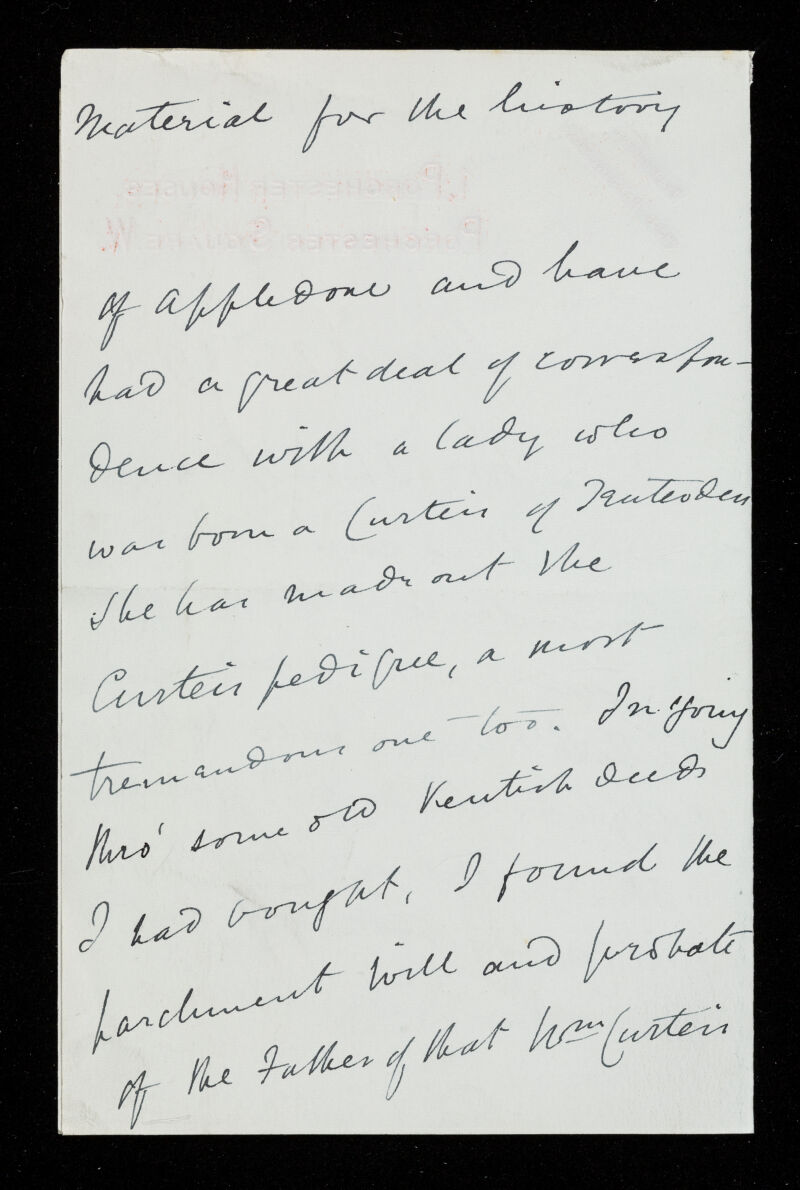 Material for the history
of Appledore and have
had a great deal of correspon-
dence with a lady who
was born a Curteis of Tenterden
She has made out the
Curteis pedigree, a most
tremendous one too. In going
thro' some old Kentish deeds
I had bought, I found the
parchment Will and probate
of the Father of that Wm Curteis
1, PORCHESTER HOUSES,
PORCHESTER SQUARE. W.